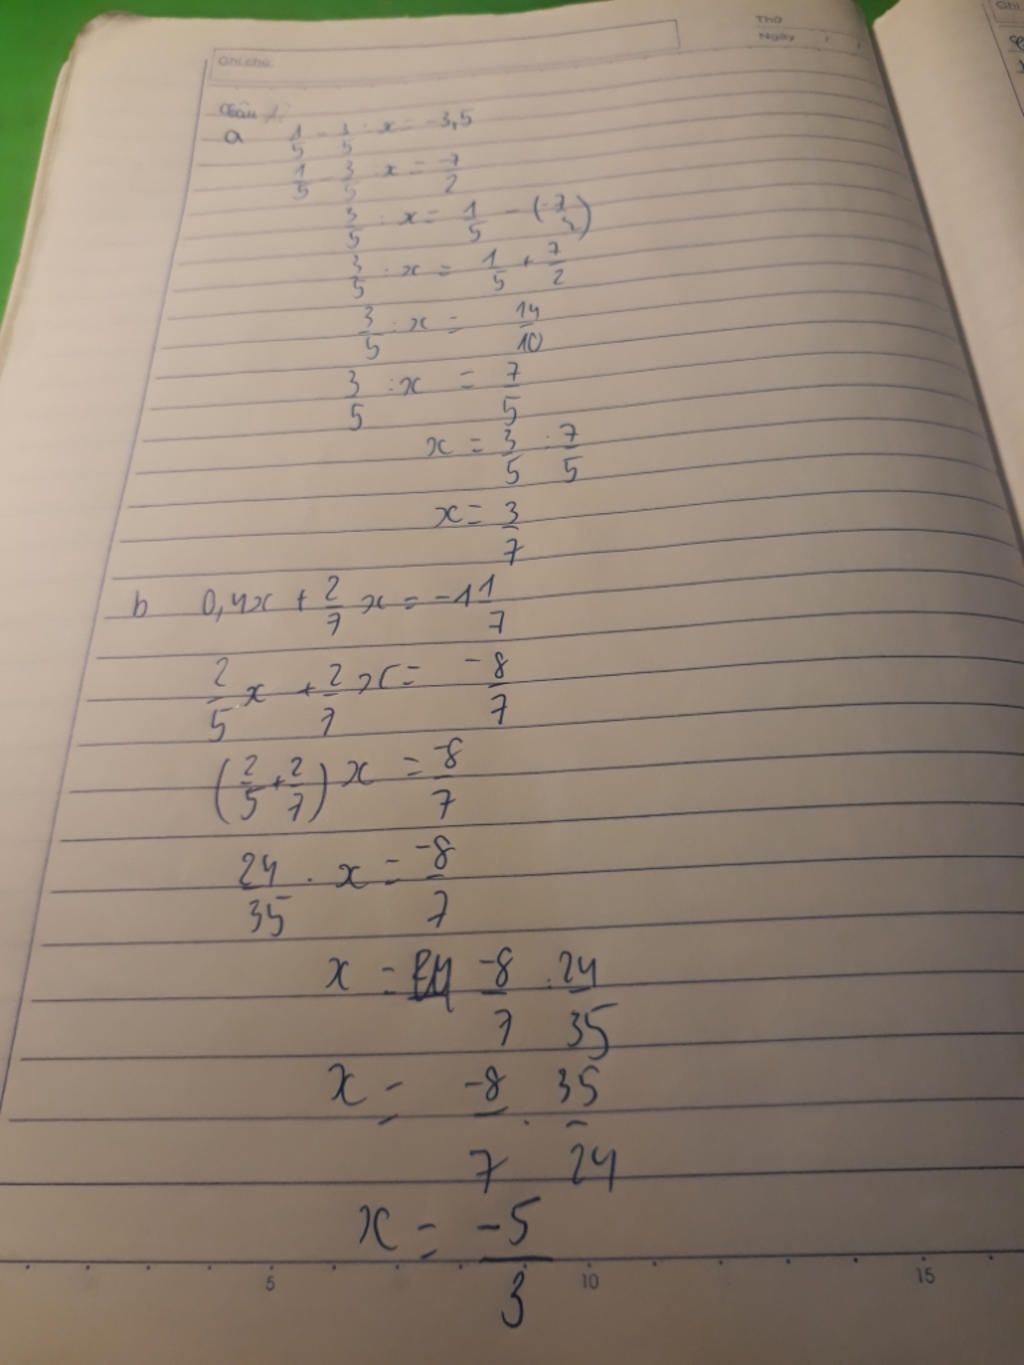 Thứ
Ngày
Ghi chú
Câu 1:
a 1/5 - 3/5 : x = -3,5
1/5 - 3/5 : x = -7/2
3/5 : x = 1/5 - (-7/2)
3/5 : x = 1/5 + 7/2
3/5 : x = 14/10
3/5 : x = 7/5
x = 3/5 : 7/5
x = 3/7
b 0,4x + 2/7 x = -1 1/7
2/5 . x + 2/7 x = -8/7
(2/5 + 2/7) x = -8/7
24/35 . x = -8/7
x = -8/7 : 24/35
x = -8/7 . 35/24
x = -5/3
5 10 15